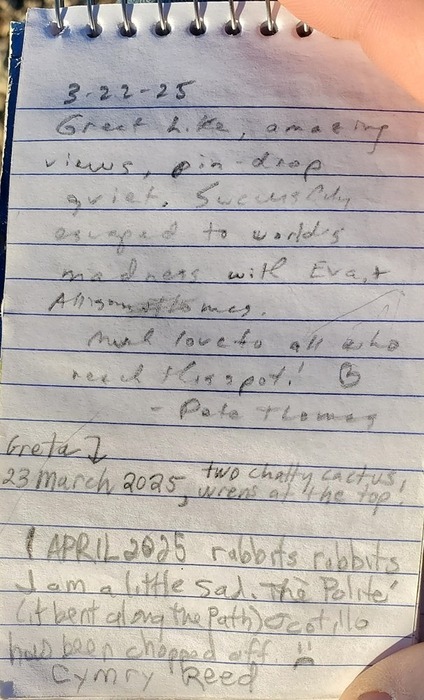 3-22-25
Great hike, amazing
views, pin-drop
quiet. Successfully
escaped to worlds
madness with Eva, +
Allison Thomas.
Much love to all who
reach this spot!
- Pete Thomas
Greta
23 March 2025, two chatty cactus,
wrens at the top!
1 APRIL 2025 rabbits rabbits
I am a little sad. The 'Polite'
(it bent along the path) Ocotillo
has been chopped off. ☹
Cymry Reed